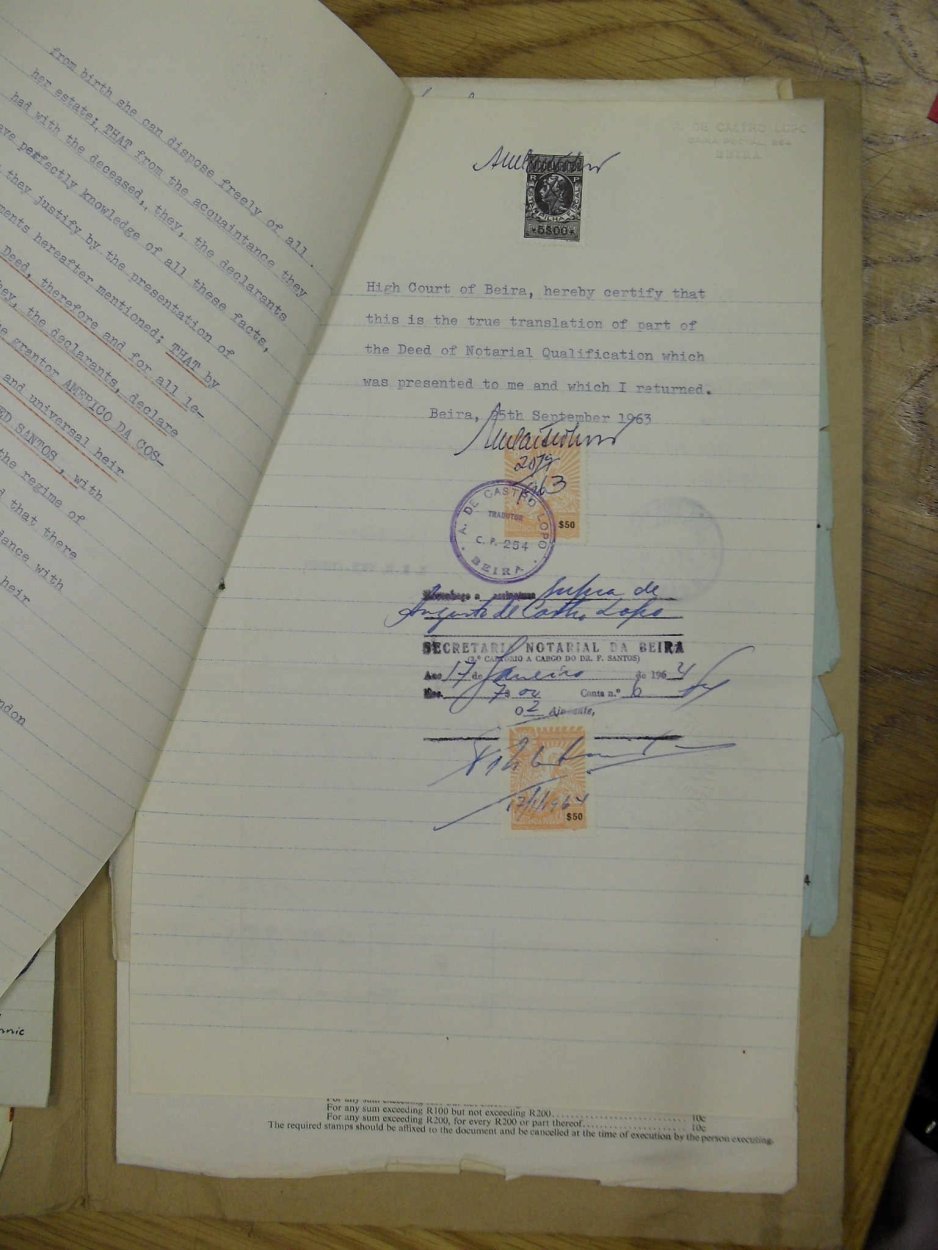 from birth she can dispose freely of all
her estate; THAT from the acquaintance they
had with the deceased,, they, the declarants
perfectly knowledge of all these facts,
they justify by the presentation of
ments hereafter mentioned; THAT by
Deed, therefore and for all le-
they, the declarants, declare
grantor AMERICO DA COS-
and universal heir
ED SANTOS, with
the regime of
that there
ance with
heir
ndon
nnic
DE CASTRO LOPO
CAIXA POSTAL, 254
BEIRA
R P
*5$00*
High Court of Beira, hereby certify that
this is the true translation of part of
the Deed of Notarial Qualification which
was presented to me and which I returned.
Beira, 25th September 1963
$50
A. DE CASTRO LOPO
TRADUTOR
C. P. 254
BEIRA
Reconheço a assinatura supra de
Augusto de Castro Lopo
SECRETARIA NOTARIAL DA BEIRA
(2.º CARTORIO A CARGO DO DR. F. SANTOS)
Aos 17 de Janeiro de 1964
7 00 Conta n.º 6
O 2 Ajudante,
17/1/1964
$50
For any sum exceeding R100 but not exceeding R200 10c
For any sum exceeding R200, for every R200 or part thereof 10c
The required stamps should be affixed to the document and be cancelled at the time of execution by the person executing.